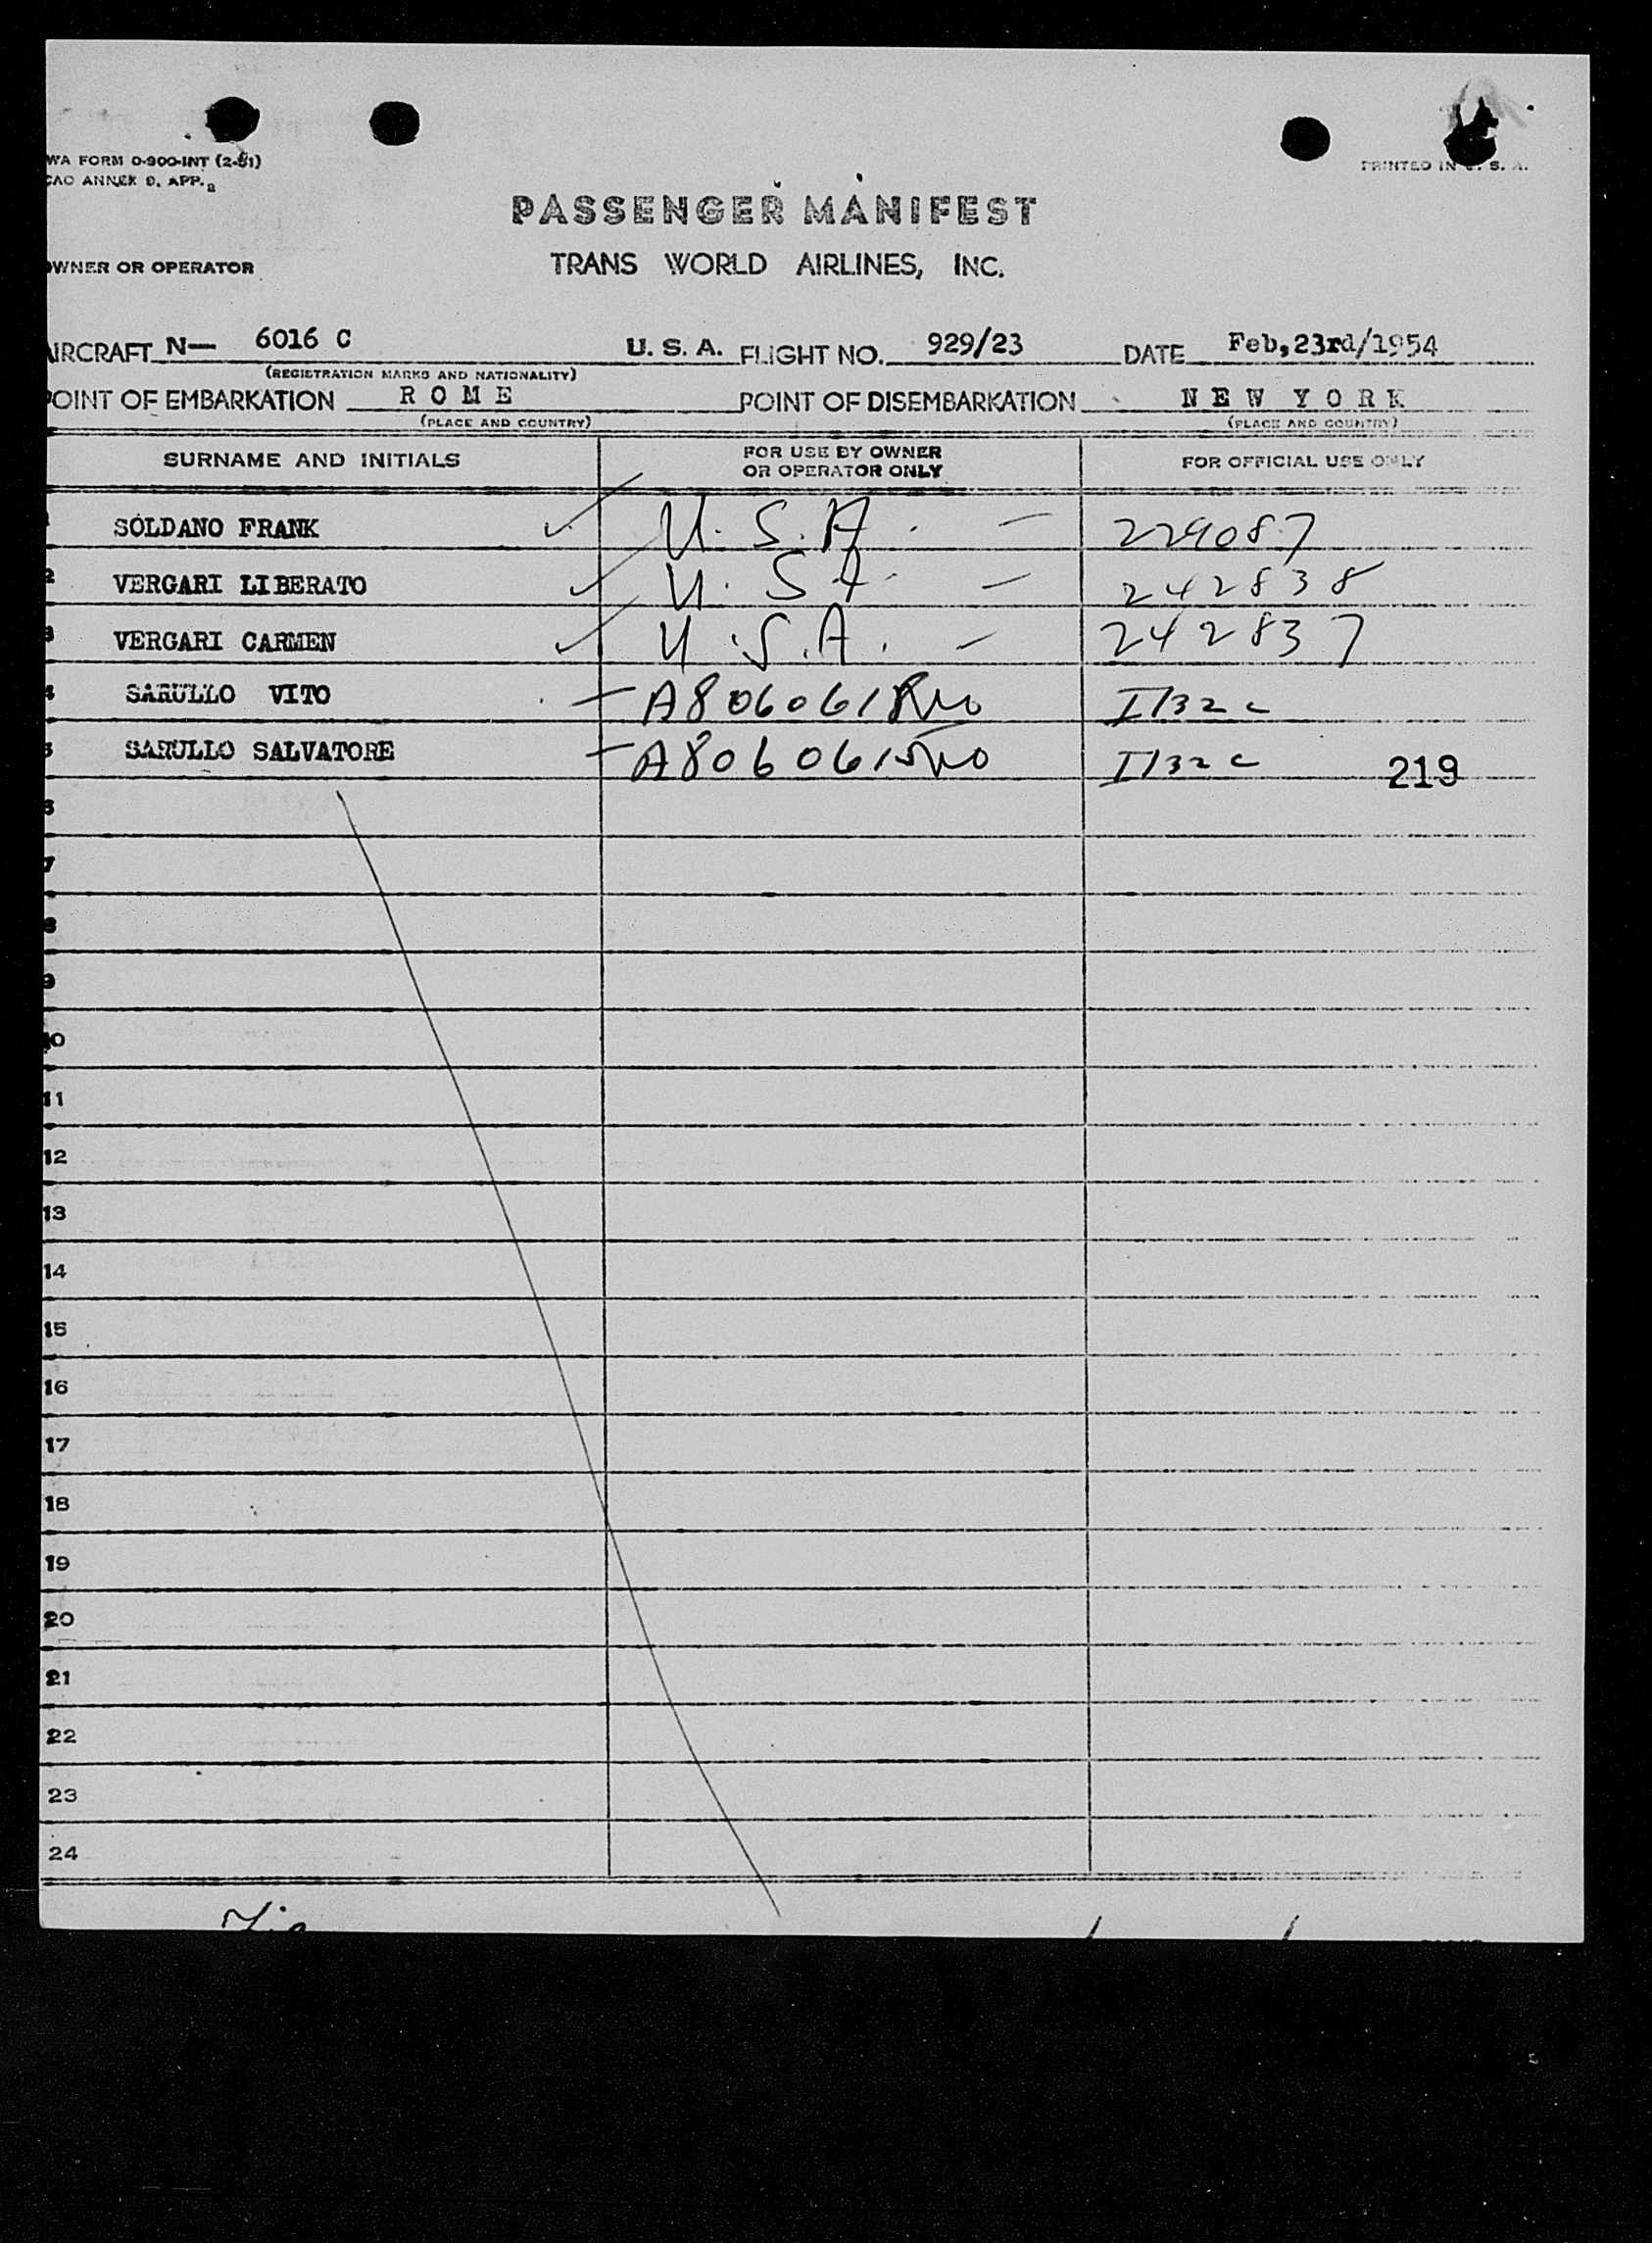 WA FORM 0-900-INT (2-51)
CAO ANNEX 9, APP. 2
PRINTED IN U. S. A.
PASSENGER MANIFEST
WNER OR OPERATOR
TRANS WORLD AIRLINES, INC.
IRCRAFT N— 6016 C U. S. A. FLIGHT NO. 929/23 DATE Feb,23rd/1954
(REGISTRATION MARKS AND NATIONALITY)
OINT OF EMBARKATION R O M E POINT OF DISEMBARKATION N E W Y O R K
(PLACE AND COUNTRY) (PLACE AND COUNTRY)
SURNAME AND INITIALS FOR USE BY OWNER OR OPERATOR ONLY FOR OFFICIAL USE ONLY
1 SOLDANO FRANK U.S.A. — 229087
2 VERGARI LIBERATO U.S.A. — 242838
3 VERGARI CARMEN U.S.A. — 242837
4 SARULLO VITO — A8060618 I132c
5 SARULLO SALVATORE — A8060615 I132c 219
6
7
8
9
10
11
12
13
14
15
16
17
18
19
20
21
22
23
24